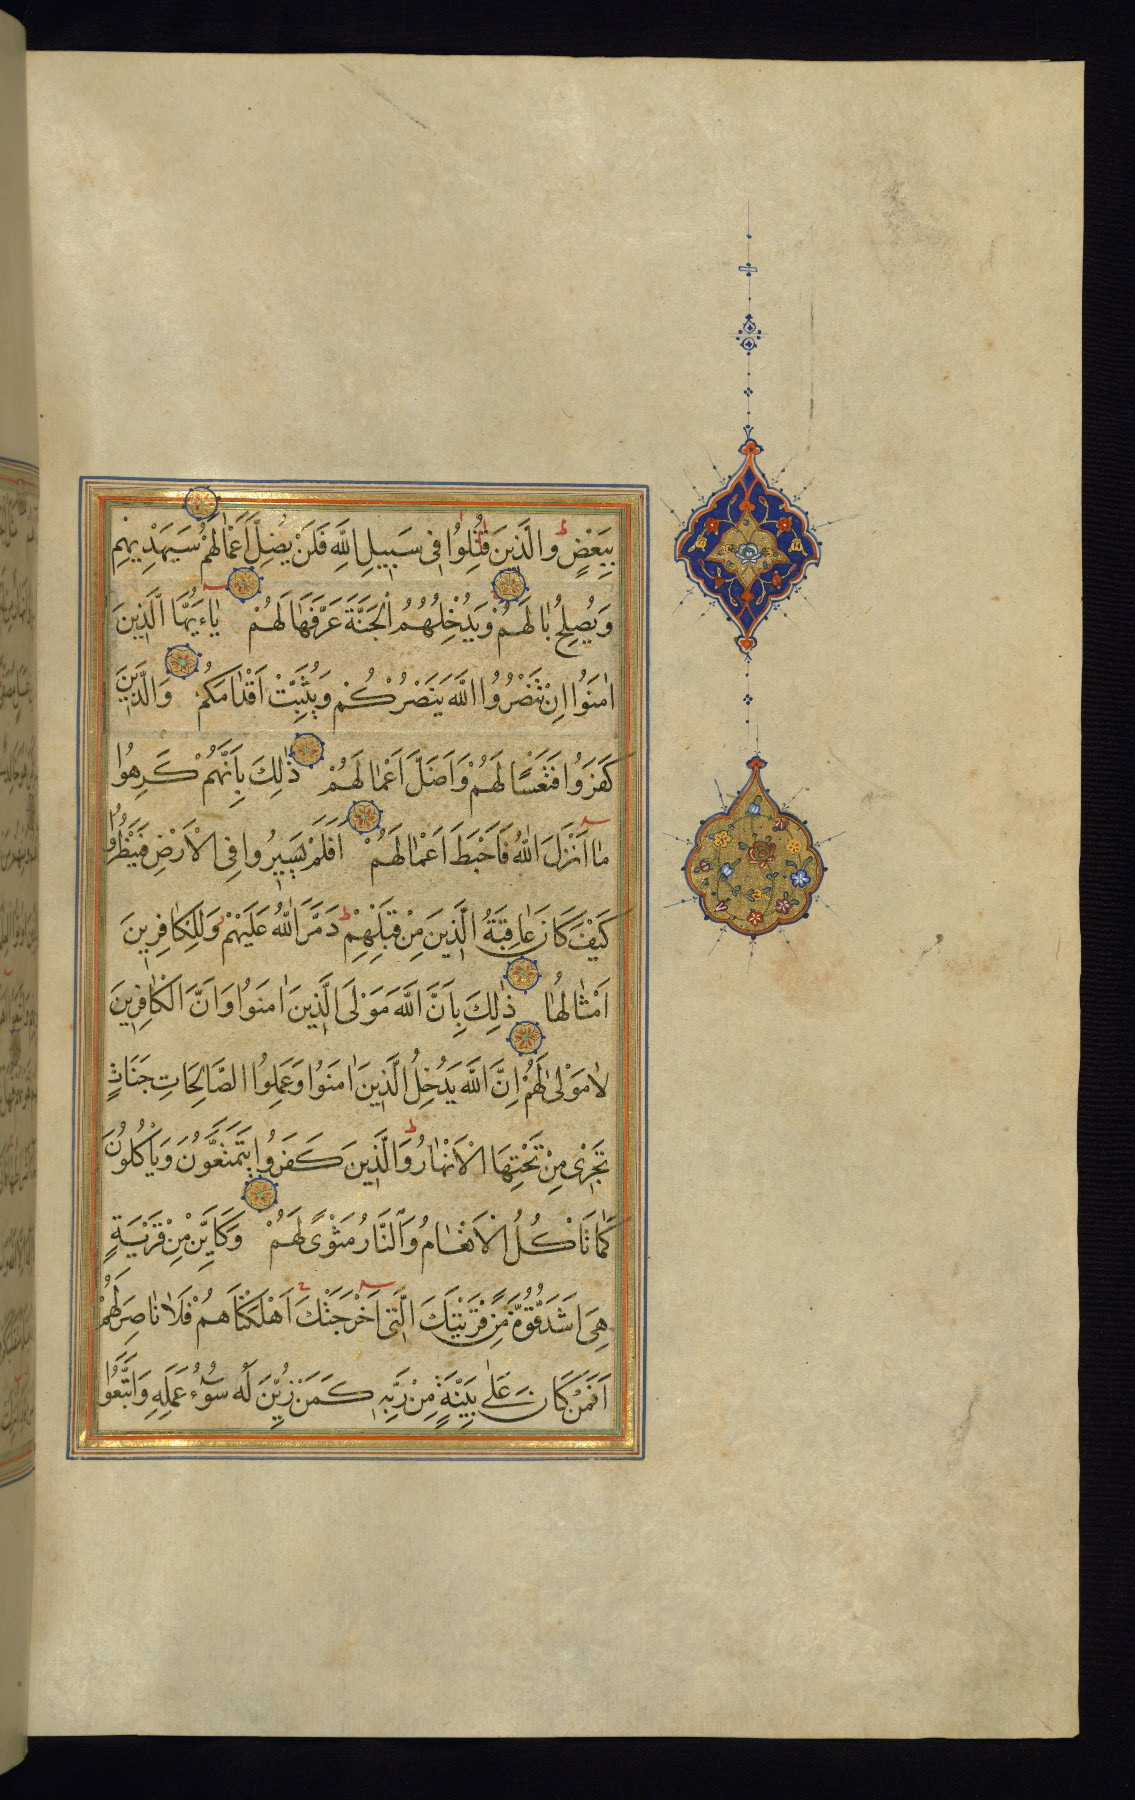 بِبَعْضٍ وَالَّذِينَ قُتِلُوا فِي سَبِيلِ اللَّهِ فَلَنْ يُضِلَّ أَعْمَالَهُمْ سَيَهْدِيهِمْ
وَيُصْلِحُ بَالَهُمْ وَيُدْخِلُهُمُ الْجَنَّةَ عَرَّفَهَا لَهُمْ يَاءَيُّهَا الَّذِينَ
اٰمَنُوا اِنْ تَنْصُرُوا اللَّهَ يَنْصُرْكُمْ وَيُثَبِّتْ اَقْدَامَكُمْ وَالَّذِينَ
كَفَرُوا فَتَعْسًا لَهُمْ وَاَضَلَّ اَعْمَالَهُمْ ذٰلِكَ بِاَنَّهُمْ كَرِهُوا
مَا اَنْزَلَ اللّٰهُ فَاَحْبَطَ اَعْمَالَهُمْ اَفَلَمْ يَسِيرُوا فِي الْاَرْضِ فَيَنْظُرُوا
كَيْفَ كَانَ عَاقِبَةُ الَّذِينَ مِنْ قَبْلِهِمْ دَمَّرَ اللّٰهُ عَلَيْهِمْ وَلِلْكَافِرِينَ
اَمْثَالُهَا ذٰلِكَ بِاَنَّ اللَّهَ مَوْلَى الَّذِينَ اٰمَنُوا وَاَنَّ الْكَافِرِينَ
لَا مَوْلٰى لَهُمْ اِنَّ اللَّهَ يُدْخِلُ الَّذِينَ اٰمَنُوا وَعَمِلُوا الصَّالِحَاتِ جَنَّاتٍ
تَجْرِي مِنْ تَحْتِهَا الْاَنْهَارُ وَالَّذِينَ كَفَرُوا يَتَمَتَّعُونَ وَيَاْكُلُونَ
كَمَا تَاْكُلُ الْاَنْعَامُ وَالنَّارُ مَثْوًى لَهُمْ وَكَاَيِّنْ مِنْ قَرْيَةٍ
هِيَ اَشَدُّ قُوَّةً مِنْ قَرْيَتِكَ الَّتِي اَخْرَجَتْكَ اَهْلَكْنَاهُمْ فَلَا نَاصِرَ لَهُمْ
اَفَمَنْ كَانَ عَلٰى بَيِّنَةٍ مِنْ رَبِّهِ كَمَنْ زُيِّنَ لَهُ سُوۤءُ عَمَلِهِ وَاتَّبَعُوا